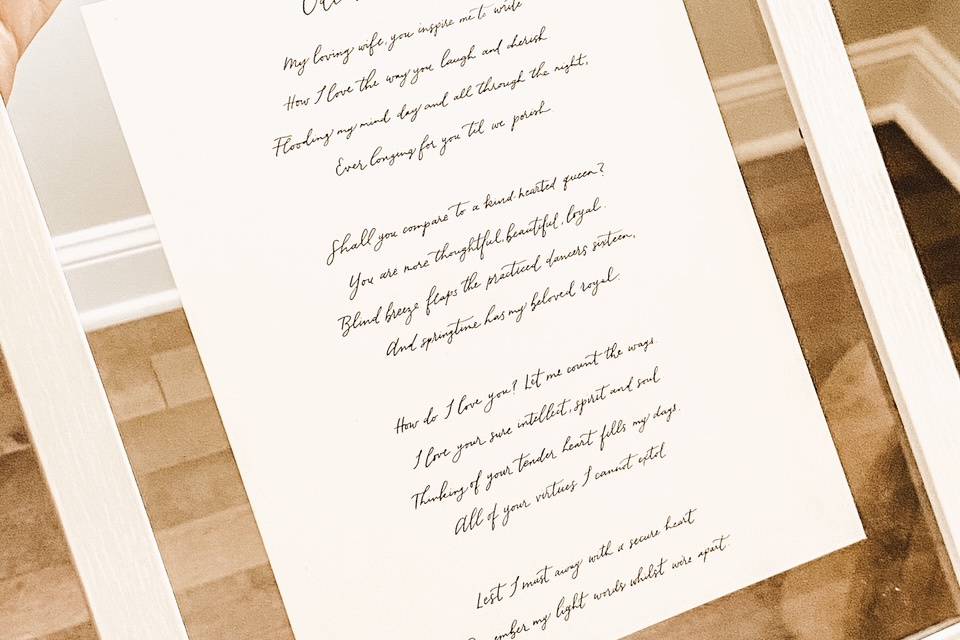 My loving wife, you inspire me to write
How I love the way you laugh and cherish
Flooding my mind day and all through the night,
Ever longing for you til we perish
Shall you compare to a kind-hearted queen?
You are more thoughtful, beautiful, loyal.
Blind breeze flaps the practiced dancers sixteen,
And springtime has my beloved royal.
How do I love you? Let me count the ways.
I love your sure intellect, spirit and soul
Thinking of your tender heart fills my days.
All of your virtues I cannot extol
Lest I must away with a secure heart
ember my light words whilst we're apart.